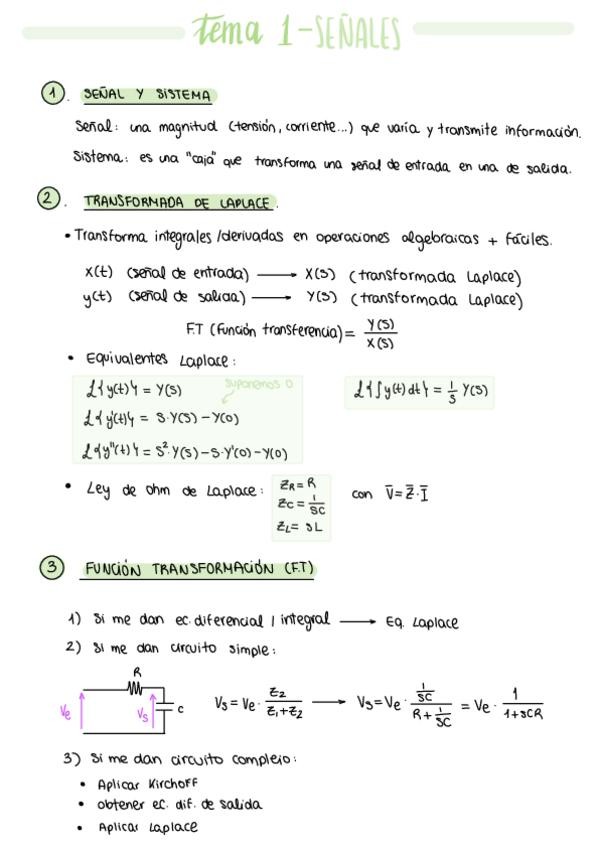 tema 1-SEÑALES
1. SEÑAL Y SISTEMA
Señal: una magnitud (tensión, corriente...) que varía y transmite información.
Sistema: es una "caja" que transforma una señal de entrada en una de salida.
2. TRANSFORMADA DE LAPLACE.
• Transforma integrales /derivadas en operaciones algebraicas + fáciles.
x(t) (señal de entrada) ⟶ X(S) (transformada Laplace)
y(t) (señal de salida) ⟶ Y(S) (transformada Laplace)
F.T (Función transferencia) = Y(S) / X(S)
• Equivalentes Laplace:
suponemos 0
ℒ{y(t)} = Y(S)
ℒ{∫y(t)dt} = 1/S Y(S)
ℒ{y'(t)} = S·Y(S) - Y(0)
ℒ{y''(t)} = S²·Y(S) - S·Y'(0) - Y(0)
• Ley de ohm de Laplace: ZR = R
ZC = 1/SC con V̄ = Z̄·Ī
ZL = SL
3 FUNCIÓN TRANSFORMACIÓN (F.T)
1) Si me dan ec. diferencial / integral ⟶ Eq. Laplace
2) Si me dan circuito simple:
R
Ve Vs C
Vs = Ve · Z2 / (Z1+Z2) ⟶ Vs = Ve · (1/SC) / (R + 1/SC) = Ve · 1 / (1+SCR)
3) Si me dan circuito complejo:
• Aplicar Kirchoff
• obtener ec. dif. de salida
• Aplicar Laplace